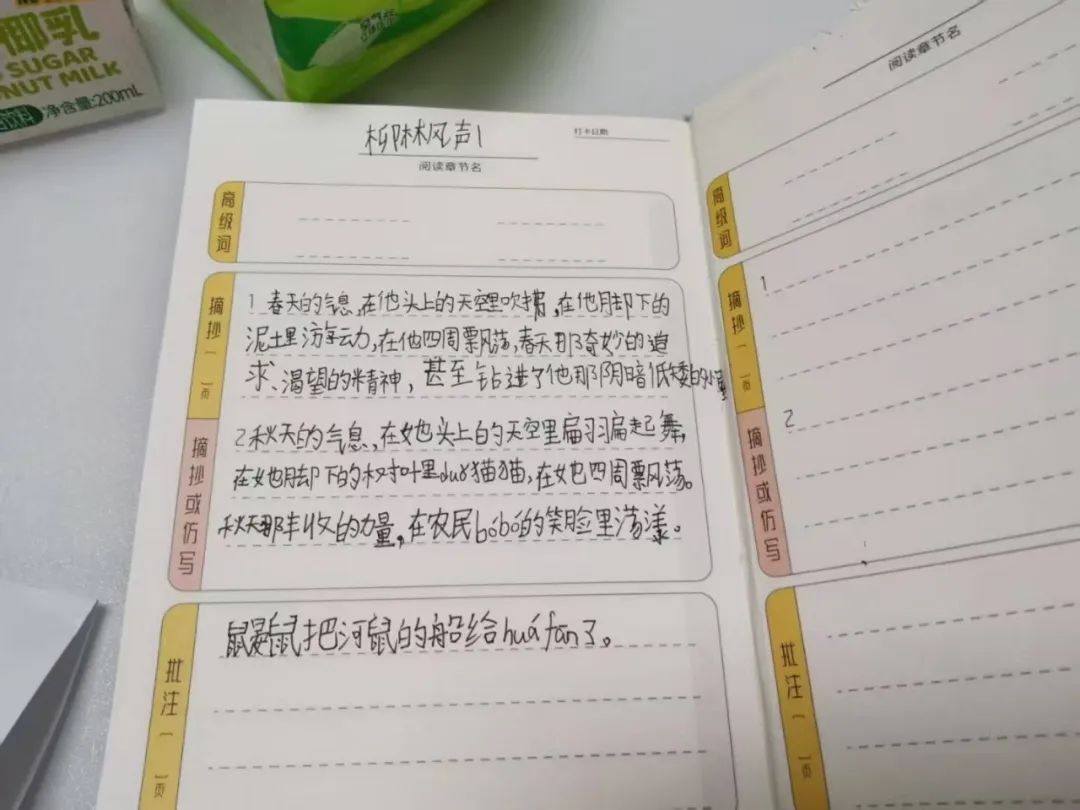 椰乳
SUGAR
NUT MILK
净含量:200mL
柳林风声1
阅读章节名
打卡日期
高级词
摘抄
页
摘抄或仿写
1 春天的气息,在他头上的天空里吹拂,在他脚下的
泥土里游动,在他四周飘荡,春天那奇妙的追
求、渴望的精神,甚至钻进了他那阴暗低矮的小
2 秋天的气息,在她头上的天空里扁羽扁起舞,
在她脚下的树叶里duǒ猫猫,在她四周飘荡。
秋天那丰收的力量,在农民bóbo的笑脸里荡漾。
批注
页
鼹鼠把河鼠的船给huá fān了。
阅读章节名
高级词
摘抄
页
摘抄或仿写
1
2
批注
页